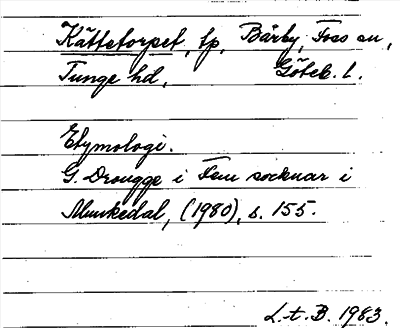 Kättetorpet, tp, Bärby, Foss sn,
Tunge hd, Göteb. l.
Etymologi.
G. Drougge i Fem socknar i
Munkedal, (1980), s. 155.
L.t.B. 1983.